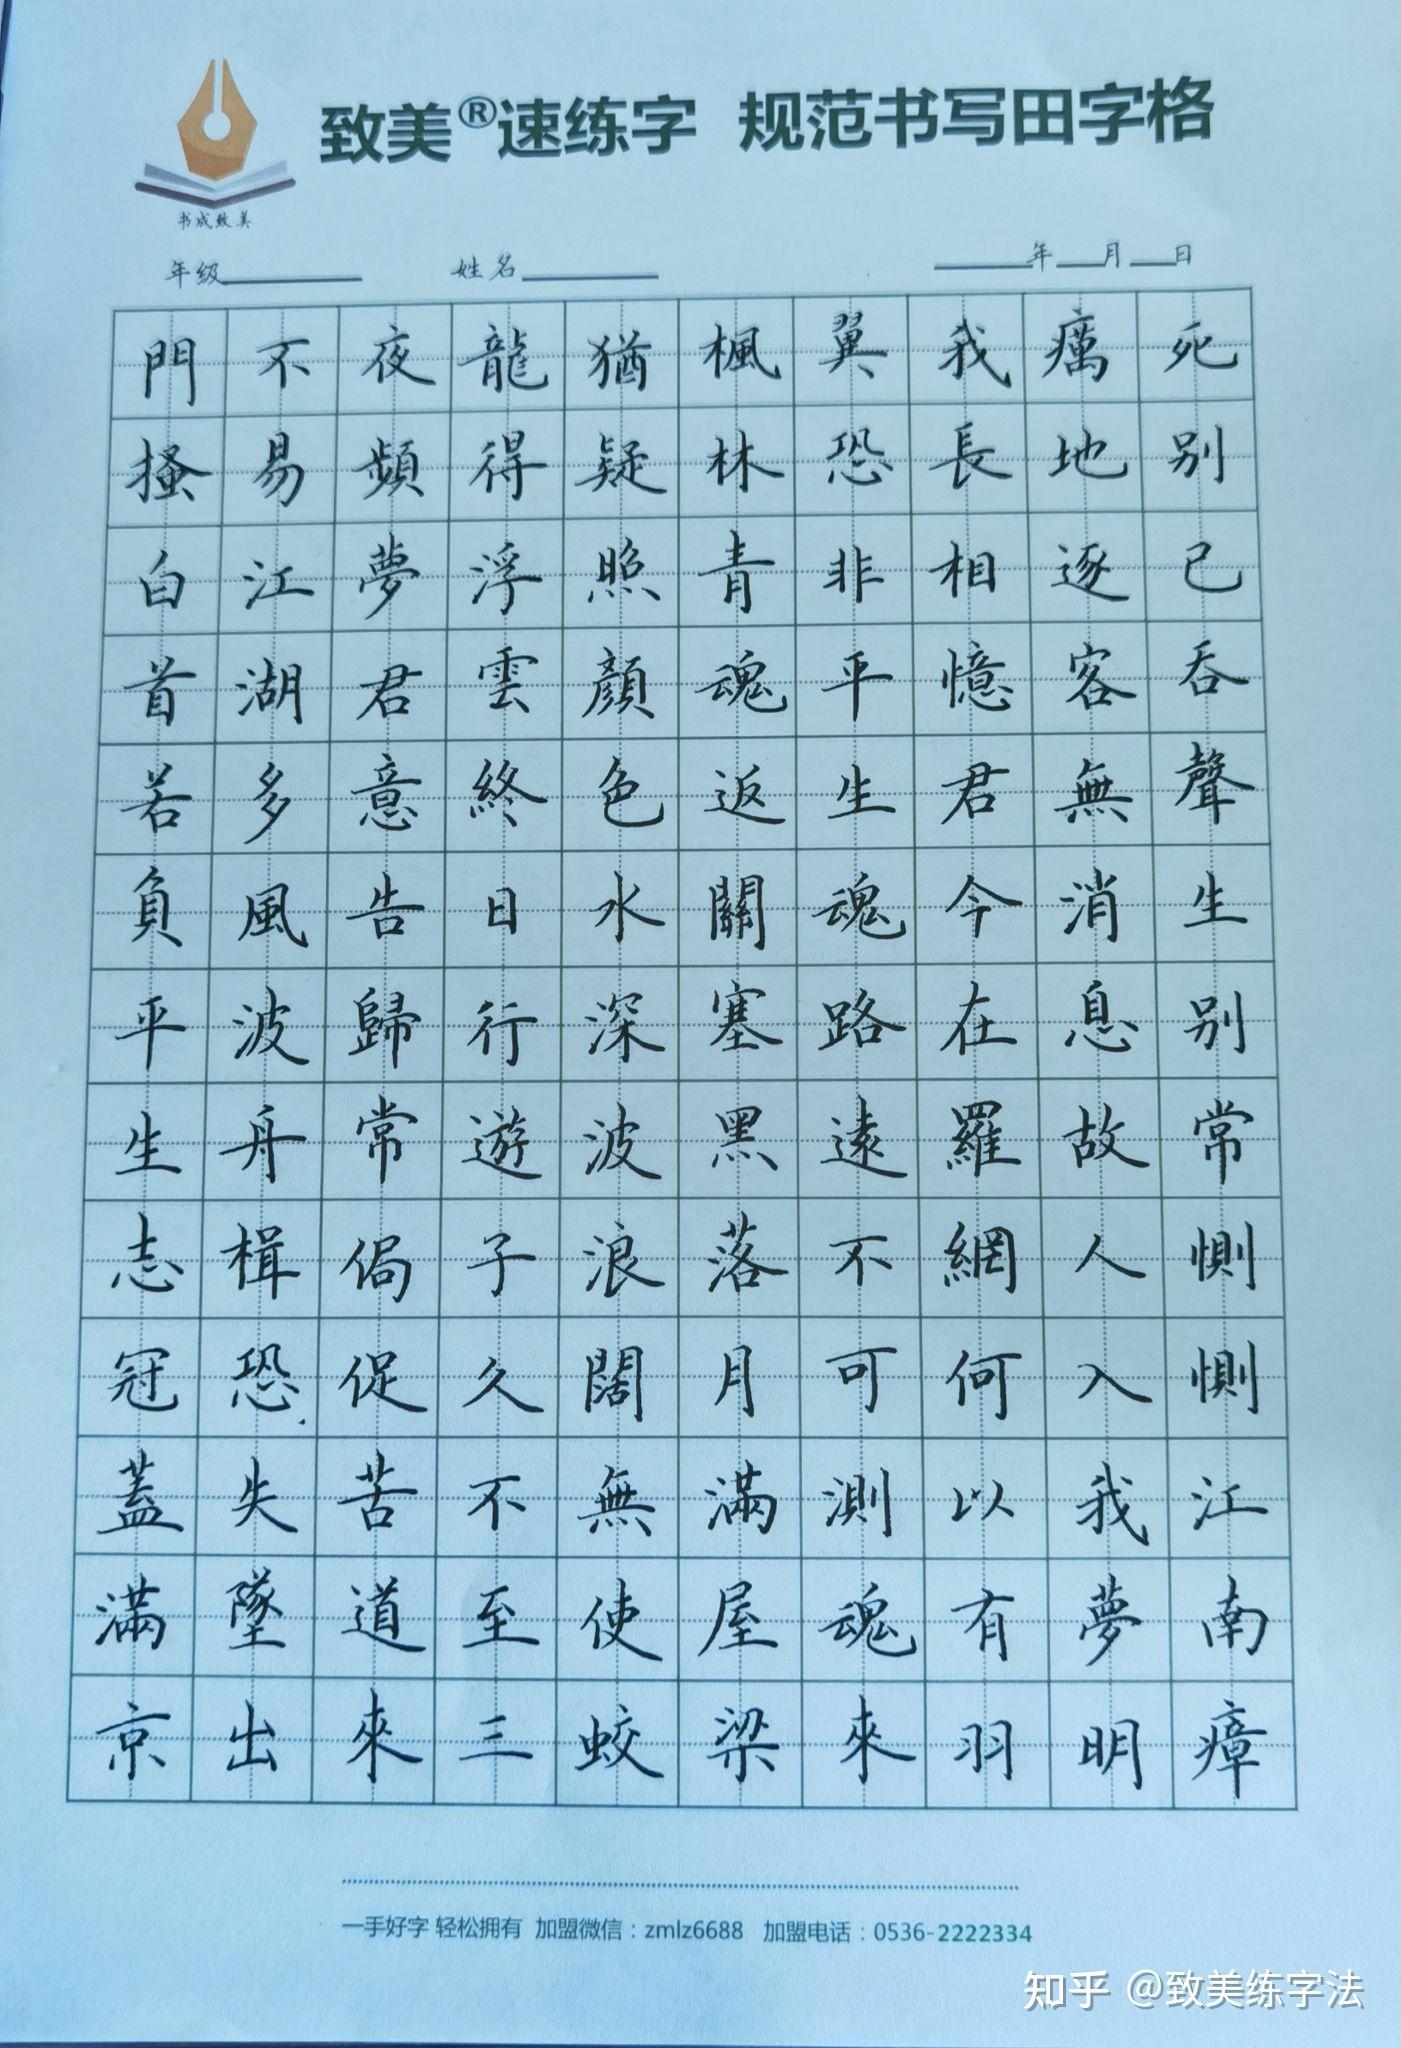 致美®速练字 规范书写田字格
书成致美
年级 姓名 年 月 日
死别已吞聲生别常惻惻江南瘴
癘地逐客無消息故人入我夢明
我長相憶君今在羅網何以有羽
翼恐非平生魂路遠不可測魂來
楓林青魂返關塞黑落月滿屋梁
猶疑照顏色水深波浪闊無使蛟
龍得浮雲終日行遊子久不至三
夜頻夢君意告歸常侷促苦道來
不易江湖多風波舟楫恐失墜出
門搔白首若負平生志冠蓋滿京
一手好字 轻松拥有 加盟微信：zmlz6688 加盟电话：0536-2222334
知乎 @致美练字法